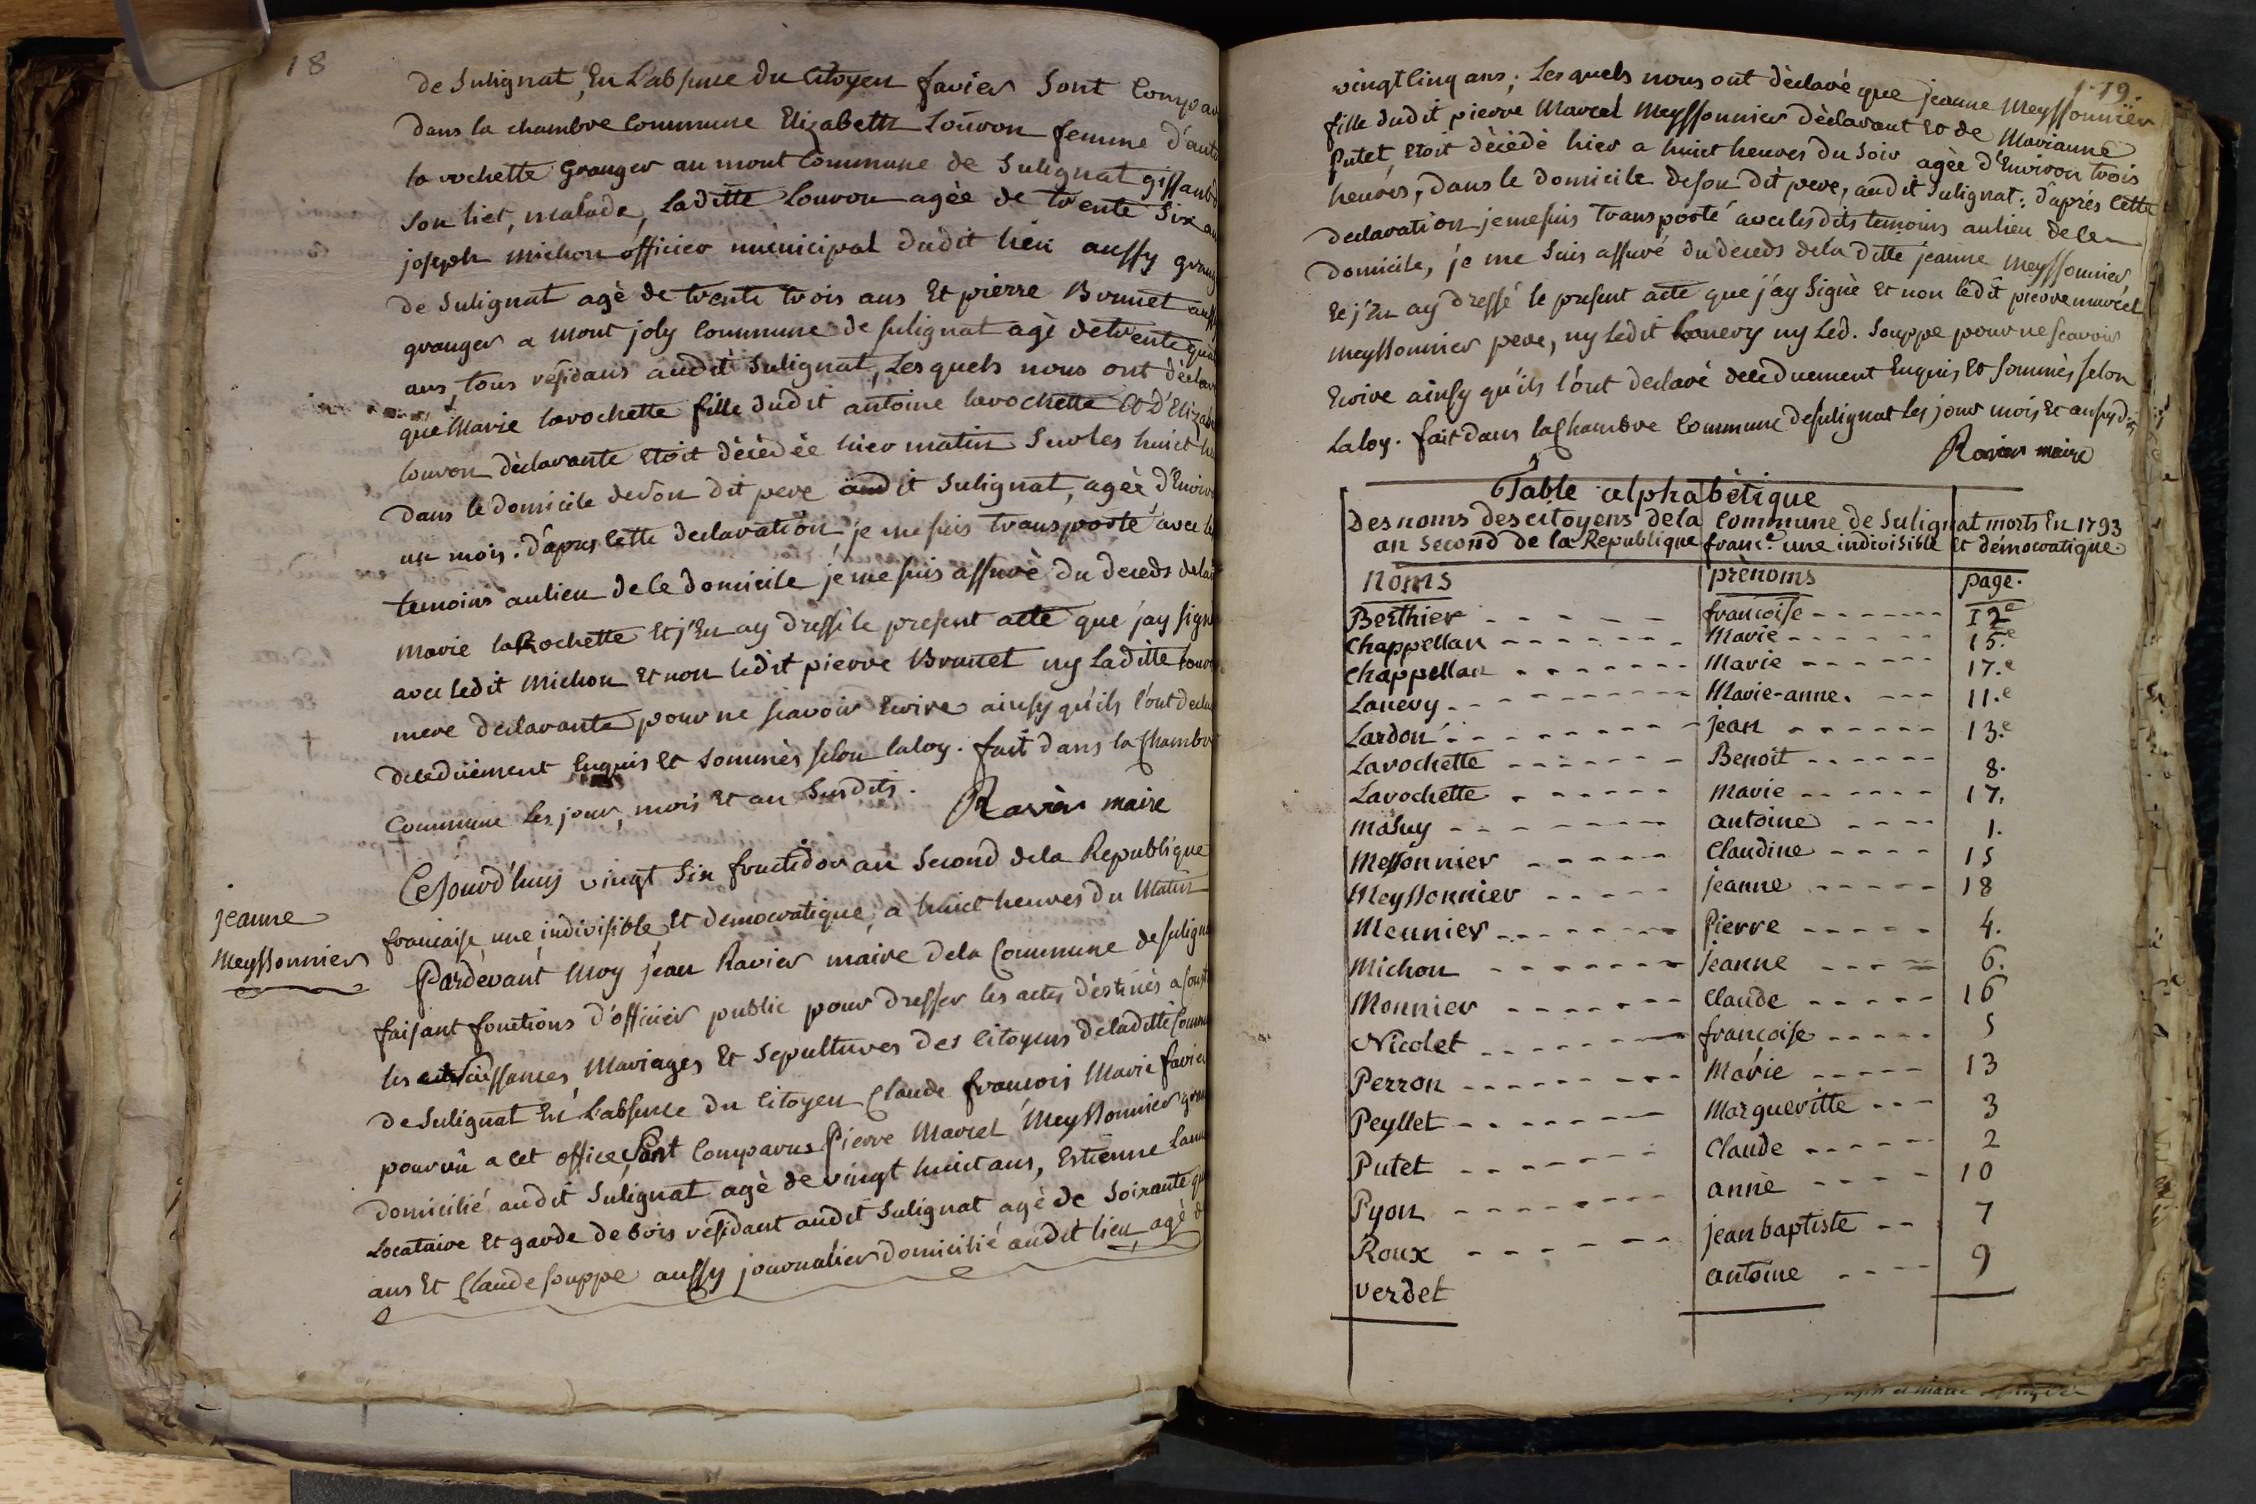 18
de Sulignat, En L'absence du Citoyen favier Sont Compar
dans la chambre Commune Elizabeth Louvon femme d'anto
la rochette Granger au mont Commune de Sulignat gissant d
son liet, malade, Laditte Louvon agée de trente Six an
joseph michon officier municipal dudit lieu aussy grang
de Sulignat agé de trente trois ans Et pierre Brunet aussy
granger a mont joly Commune de sulignat agé de trente qua
ans, tous résidans audit Sulignat, Lesquels nous ont déclar
que Marie larochette fille dudit antoine larochette Et D'Elizab
Louvon déclarante Etoit décédée hier matin Sur les huict he
Dans le domicile de son dit pere audit Sulignat, agée d'Enviro
un mois. d'après Cette declaration je me suis transporté avec le
temoins au lieu de Ce domicile je me suis assuré du deceds de la
marie laRochette Et j'En ay dressé le present acte que j'ay sign
avec ledit Michon Et non ledit pierre Brunet ny Laditte Louv
mere declarante pour ne scavoir Ecrire ainsy qu'ils l'ont decla
de ce duëment Enquis Et sommés selon laloy. fait dans la Chambr
Commune les jour, mois Et an Susdits.
Ravier maire
jeanne
Meyssonnier
Cejourd'huy vingt Six fructidor an Second de la Republique
francaise une, indivisible, Et democratique, a huict heures du Matin
Pardevant Moy jean Ravier maire de la Commune de sulign
faisant fonctions d'officier public pour dresser les actes déstinés a Const
les naissances, Mariages Et Sepultures des Citoyens de laditte Commu
de Sulignat En L'absence du Citoyen Claude francois Marie favier
pourvû a Cet office, Sont Comparus Pierre Marcel Meyssonnier gran
domicilié audit Sulignat agé de vingt huict ans, Estienne Lan
Locataire Et garde de bois résidant audit Sulignat agé de Soixante qu
ans Et Claude souppe aussy journalier domicilié audit lieu agé d
19.
vingt Cinq ans; Lesquels nous ont déclaré que jeanne Meyssonnier
fille dudit pierre Marcel Meyssonnier déclarant Et de Marianne
Putet, Etoit décédé hier a huict heures du Soir agée d'Environ trois
heures, Dans le domicile de son dit pere, audit Sulignat: d'après Cette
declaration je me suis transporté avec lesdits temoins au lieu de Ce
domicile, je me Suis assuré du deceds de la ditte jeanne Meyssonnier,
Et j'En ay dressé le present acte que j'ay Signé Et non ledit pierre marcel
Meyssonnier pere, ny Ledit Lanery ny Led. Souppe pour ne scavoir
Ecrire ainsy qu'ils l'ont declaré de ce duement Enquis Et sommés selon
Laloy. fait dans la Chambre Commune de sulignat les jour mois Et an susdits
Ravier maire
Table alphabétique
Des noms des citoyens de la Commune de Sulignat morts En 1793
an Second de la Republique franc.e une indivisible et démocratique
Noms prénoms page.
Berthier francoise 12.e
Chappellan Marie 15.e
Chappellan Marie 17.e
Lanery Marie-anne. 11.e
Lardon jean 13.e
Larochette Benoit 8.
Larochette Marie 17.
Masuy antoine 1.
Messonnier Claudine 15
Meyssonnier jeanne 18
Meunier Pierre 4.
Michon jeanne 6.
Monnier Claude 16
Nicolet francoise 5
Perron Marie 13
Peyllet Margueritte 3
Putet Claude 2
Pyon anne 10
Roux jean baptiste 7
Verdet antoine 9